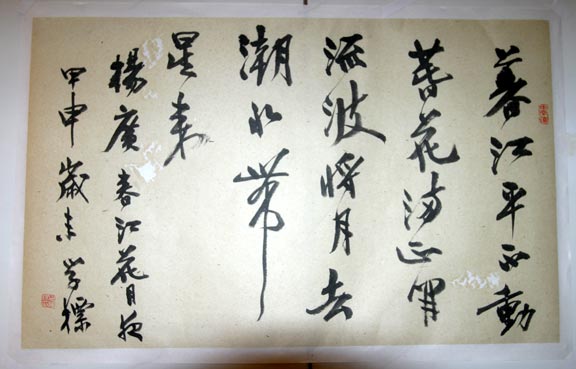 暮江平不動
春花滿正開
流波將月去
潮水帶
星來
楊廣春江花月夜
甲申歲末学標